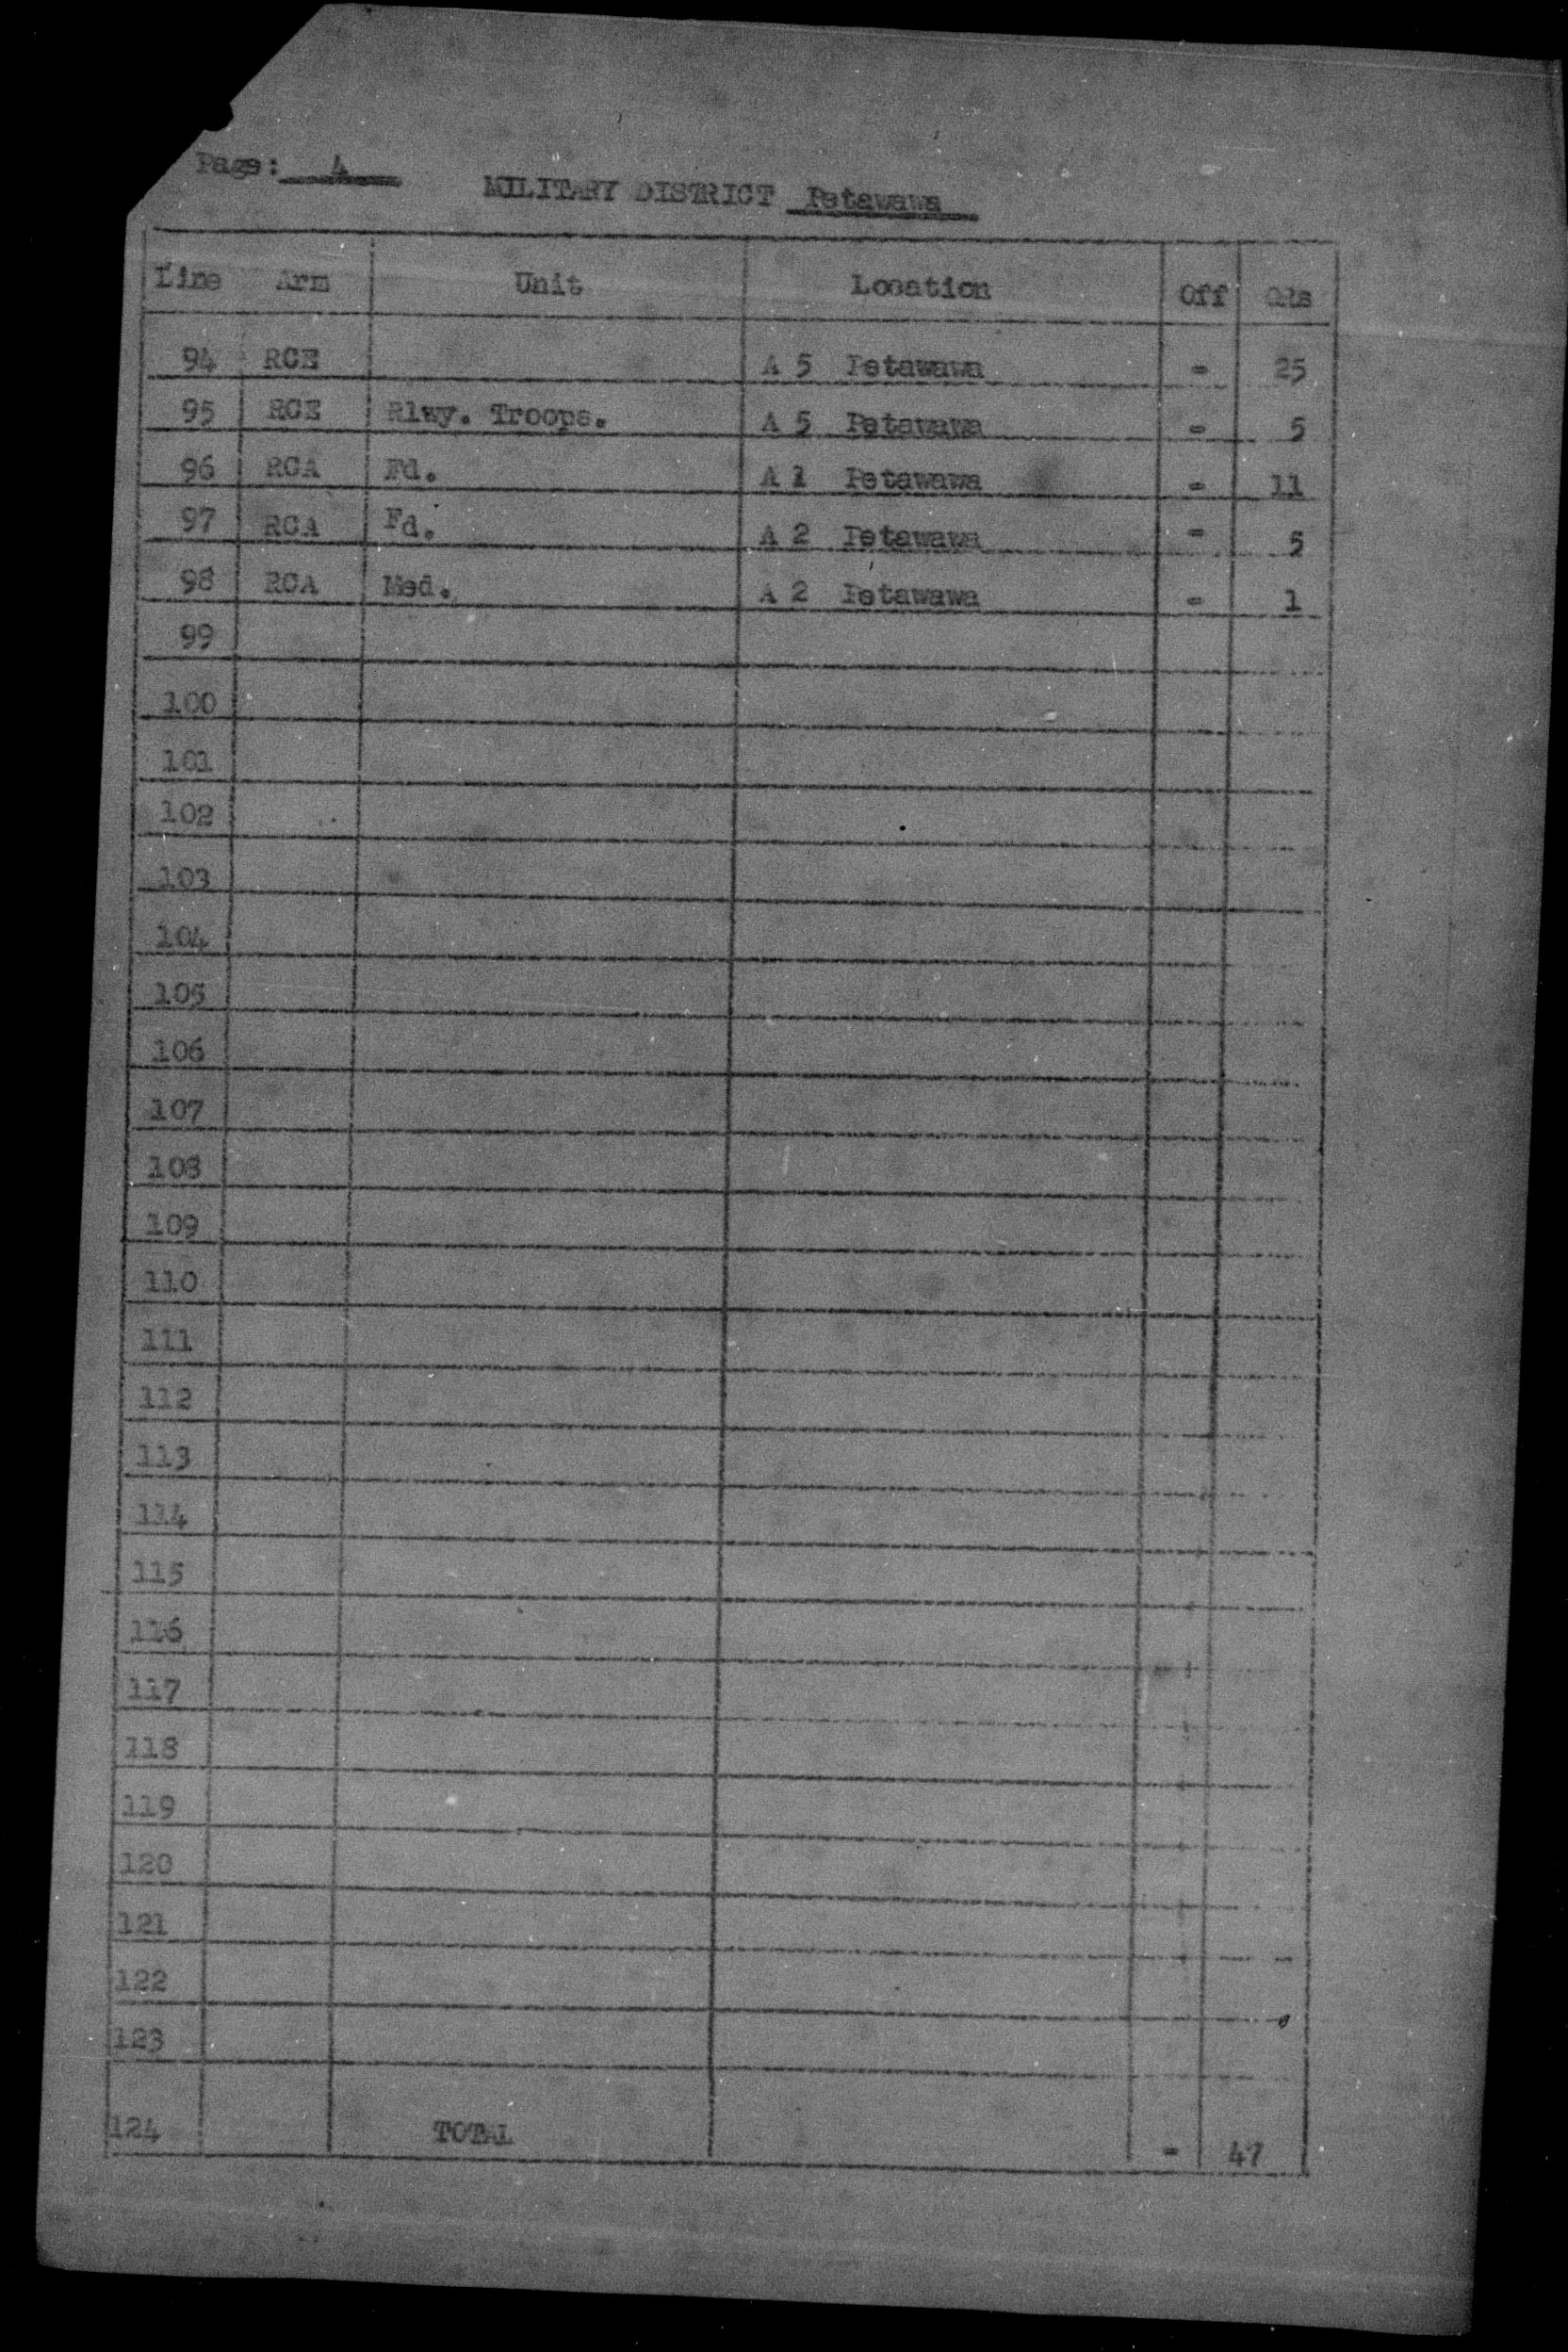 Page: 4
MILITARY DISTRICT Petawawa
Line Arm Unit Location Off ORs
94 RCE A 5 Petawawa - 25
95 RCE Rlwy. Troops. A 5 Petawawa - 5
96 RCA Fd. A 1 Petawawa - 11
97 RCA Fd. A 2 Petawawa - 5
98 RCA Med. A 2 Petawawa - 1
99
100
101
102
103
104
105
106
107
108
109
110
111
112
113
114
115
116
117
118
119
120
121
122
123
124 TOTAL - 47